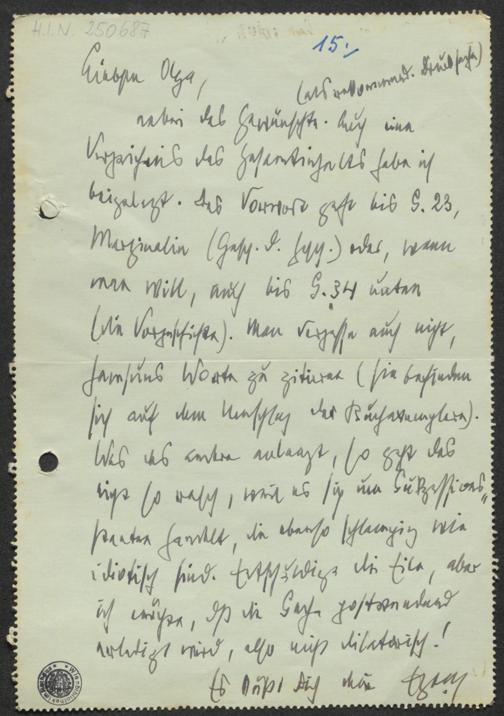 H.I.N. 250687
15./
Liebste Olga,
(als rekommand. Drucksache)
anbei das Gewünschte. Auch ein
Verzeichnis des Gesamtinhalts habe ich
beigelegt. Das Vorwort geht bis S. 23,
Marginalie (Gesch. d. Gesch.) oder, wenn
man will, auch bis S. 34 unten
(die Vorgeschichte). Man vergesse auch nicht,
Hamsuns Worte zu zitieren (sie befinden
sich auf dem Umschlag der Buchexemplare).
Was das andre anlangt, so geht das
nicht so rasch, weil es sich um Sukzessions-
staaten handelt, die ebenso schlampig wie
idiotisch sind. Entschuldige die Eile, aber
ich möchte, dß die Sache postwendend
erledigt wird, also nicht dilatorisch!
Es küßt Dich Dein Egon